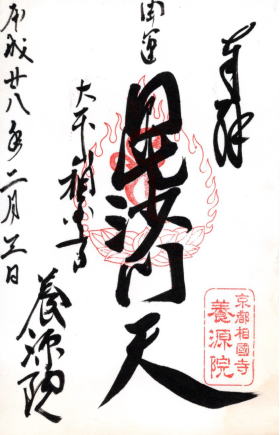 奉拝
開運
毘沙門天
大本山相国寺
平成廿八年二月三日
養源院
京都相國寺
養源院